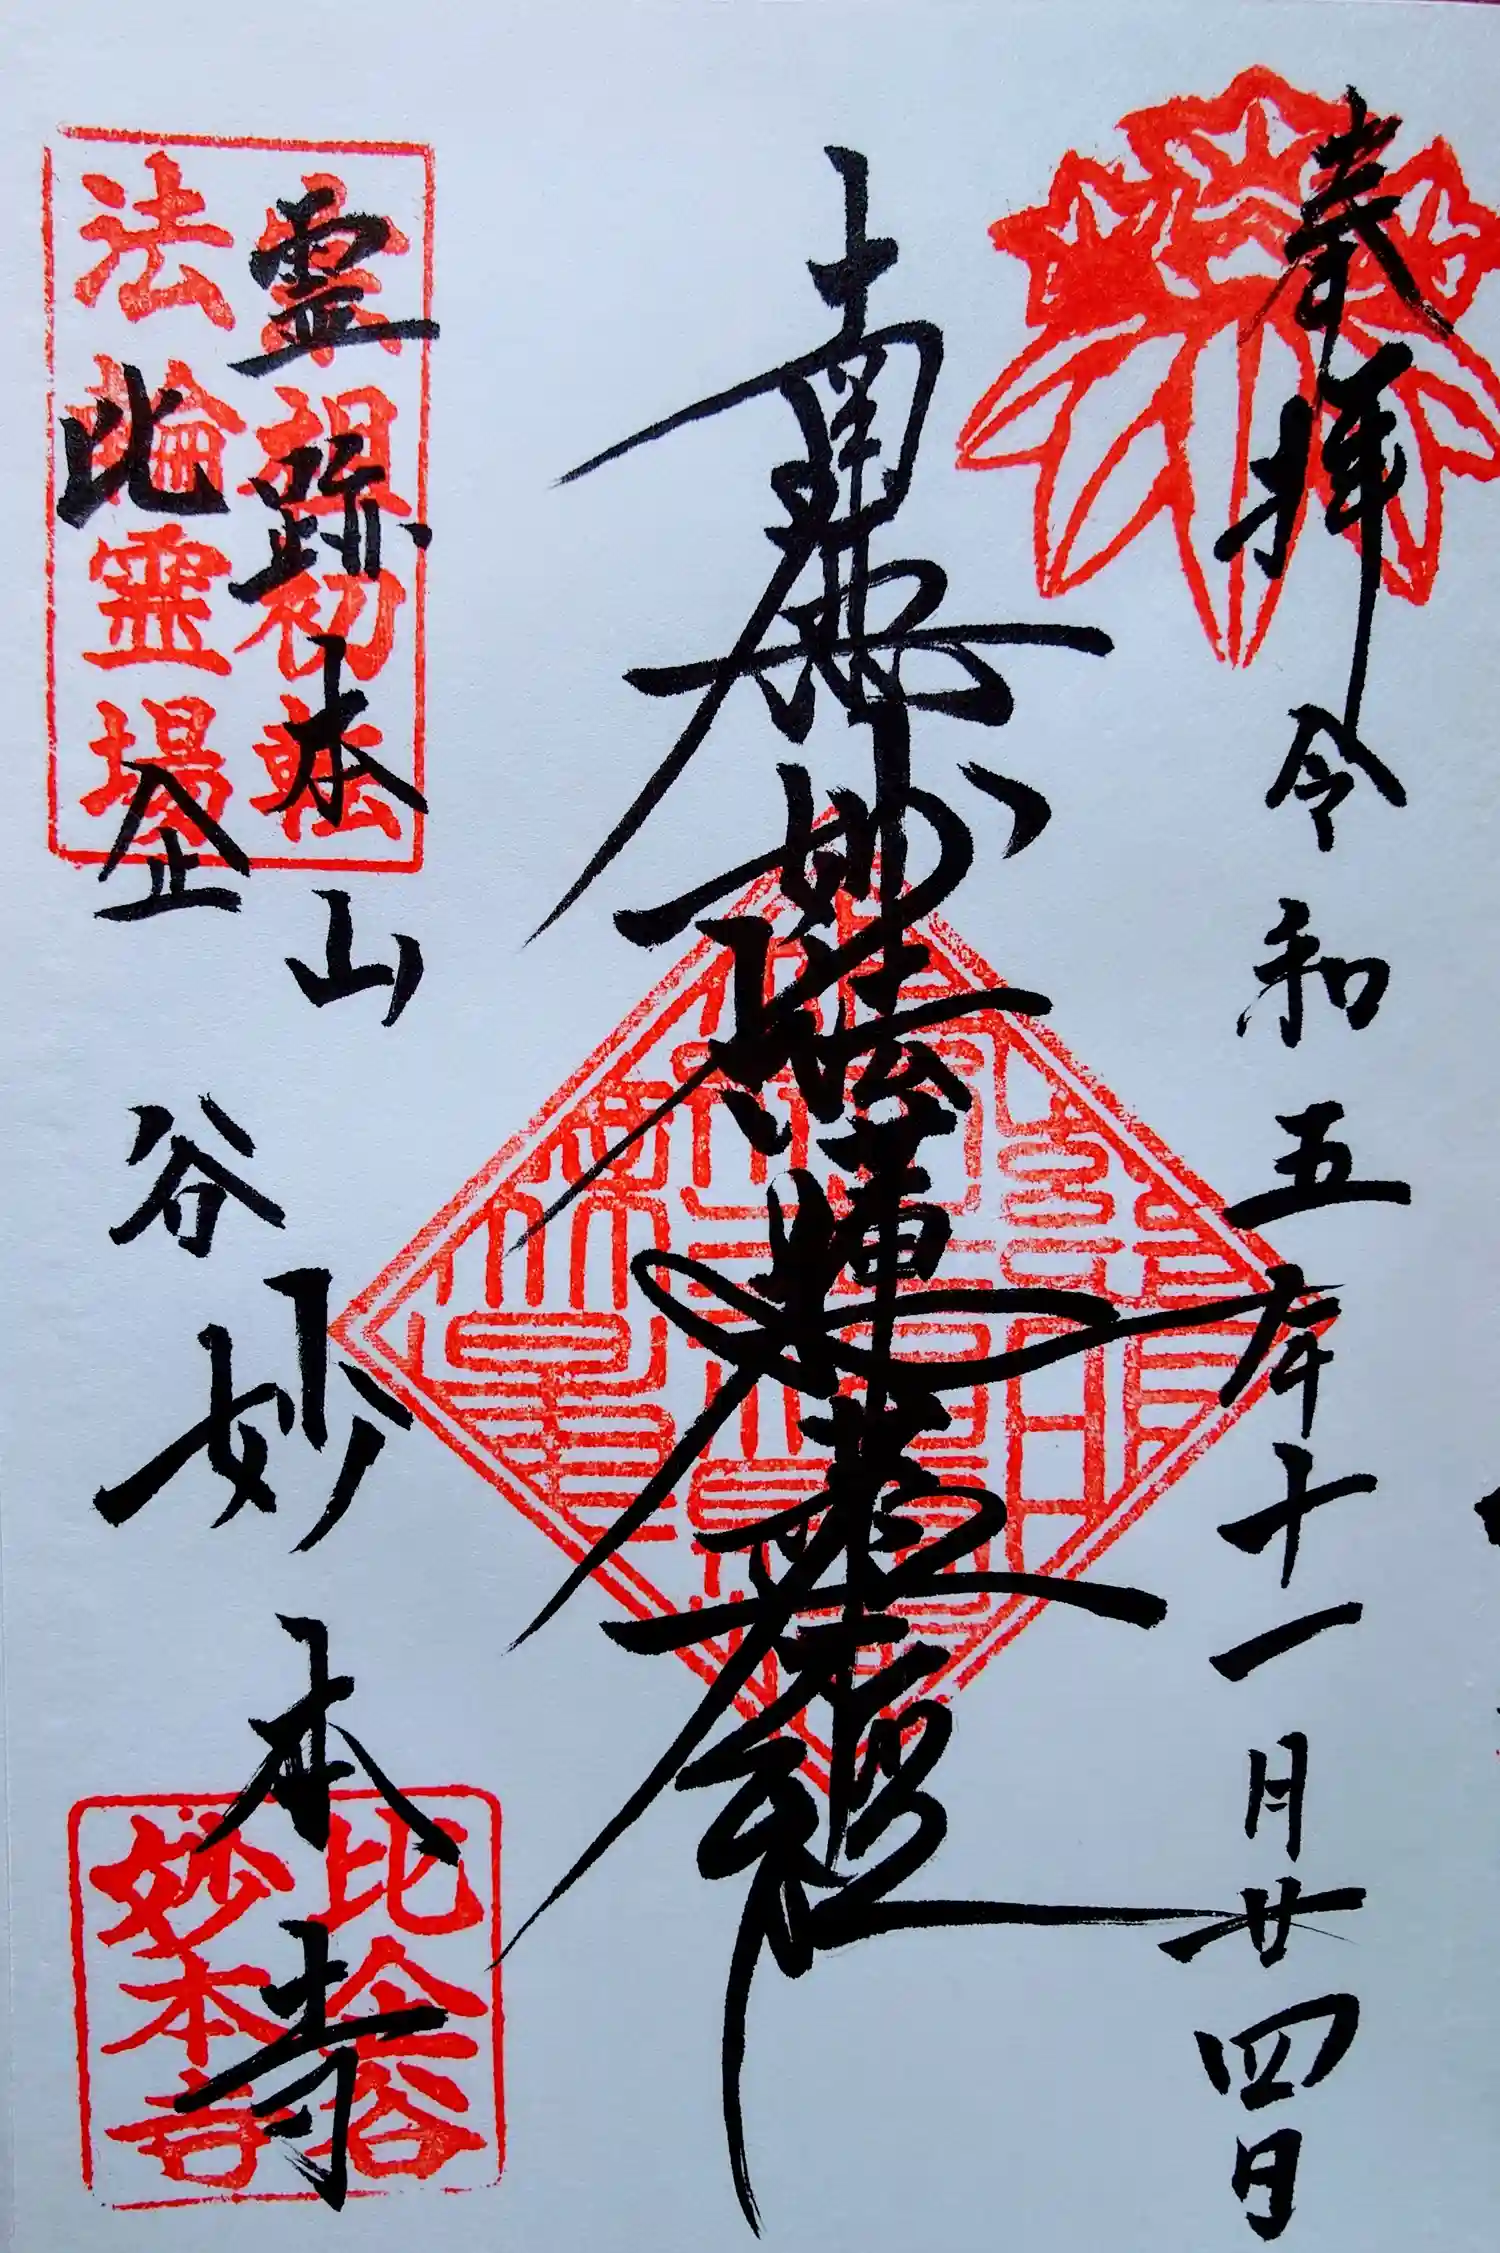 奉拝
令和五年十一月廿四日
南無妙法蓮華経
霊跡本山
比企谷
妙本寺
宗祖初転
法輪霊場
比企谷
妙本寺